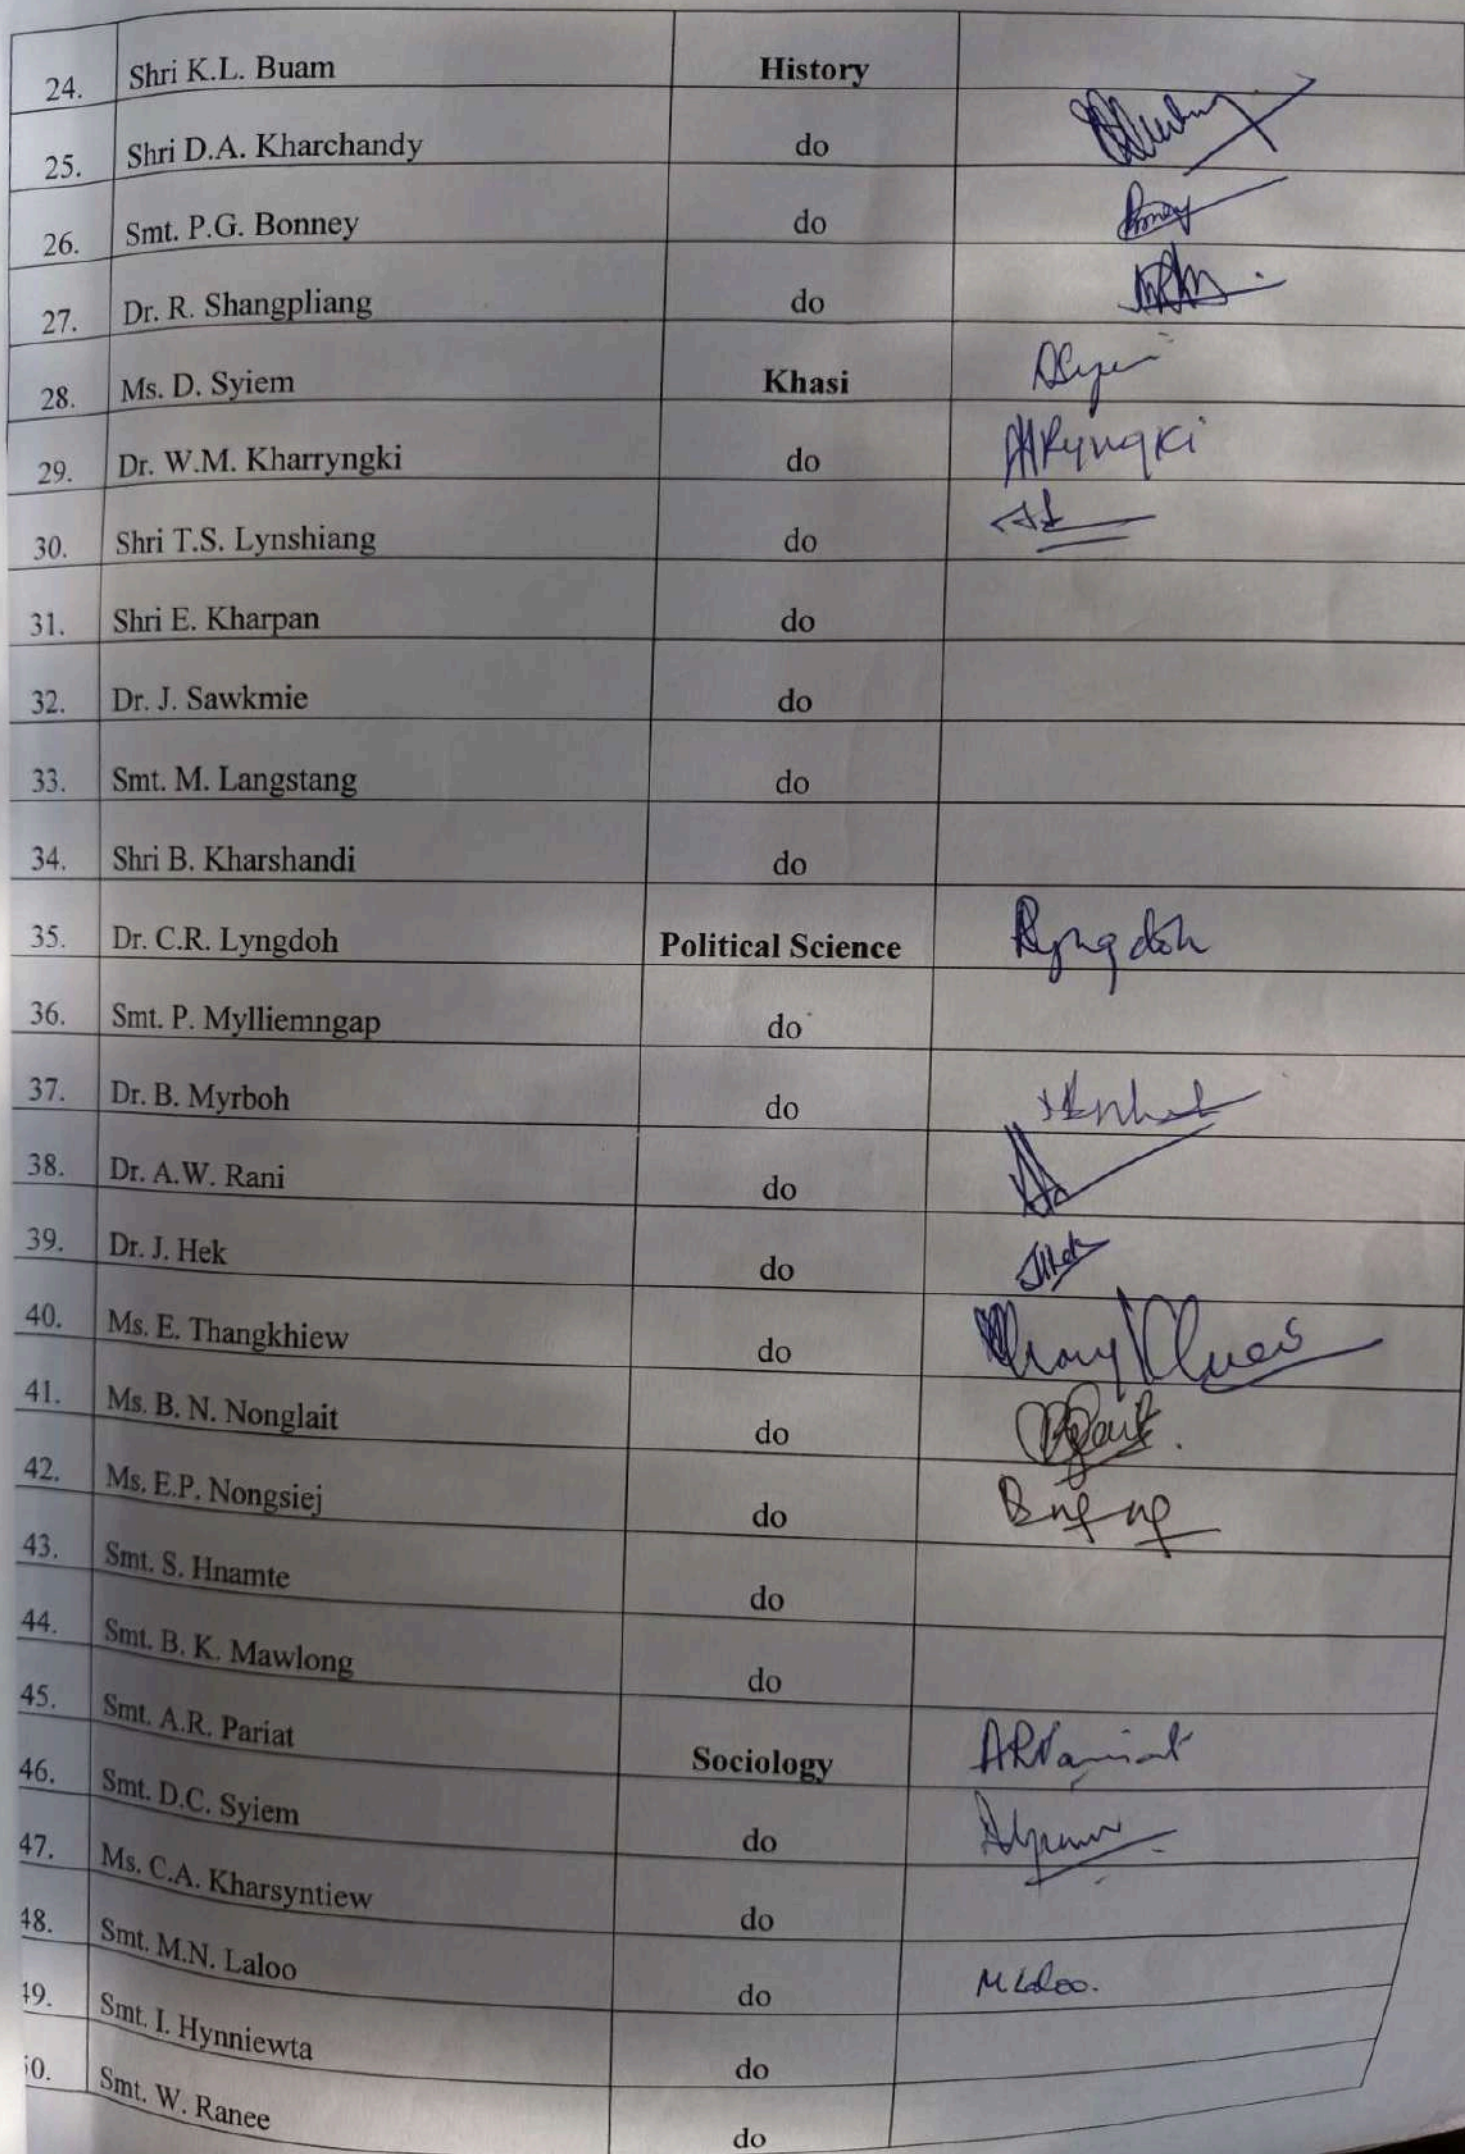 24. Shri K.L. Buam History
25. Shri D.A. Kharchandy do
26. Smt. P.G. Bonney do
27. Dr. R. Shangpliang do
28. Ms. D. Syiem Khasi
29. Dr. W.M. Kharryngki do
30. Shri T.S. Lynshiang do
31. Shri E. Kharpan do
32. Dr. J. Sawkmie do
33. Smt. M. Langstang do
34. Shri B. Kharshandi do
35. Dr. C.R. Lyngdoh Political Science
36. Smt. P. Mylliemngap do
37. Dr. B. Myrboh do
38. Dr. A.W. Rani do
39. Dr. J. Hek do JHek
40. Ms. E. Thangkhiew do
41. Ms. B. N. Nonglait do
42. Ms. E.P. Nongsiej do
43. Smt. S. Hnamte do
44. Smt. B. K. Mawlong do
45. Smt. A.R. Pariat Sociology ARPariat
46. Smt. D.C. Syiem do
47. Ms. C.A. Kharsyntiew do
48. Smt. M.N. Laloo do M Laloo.
49. Smt. I. Hynniewta do
50. Smt. W. Ranee do